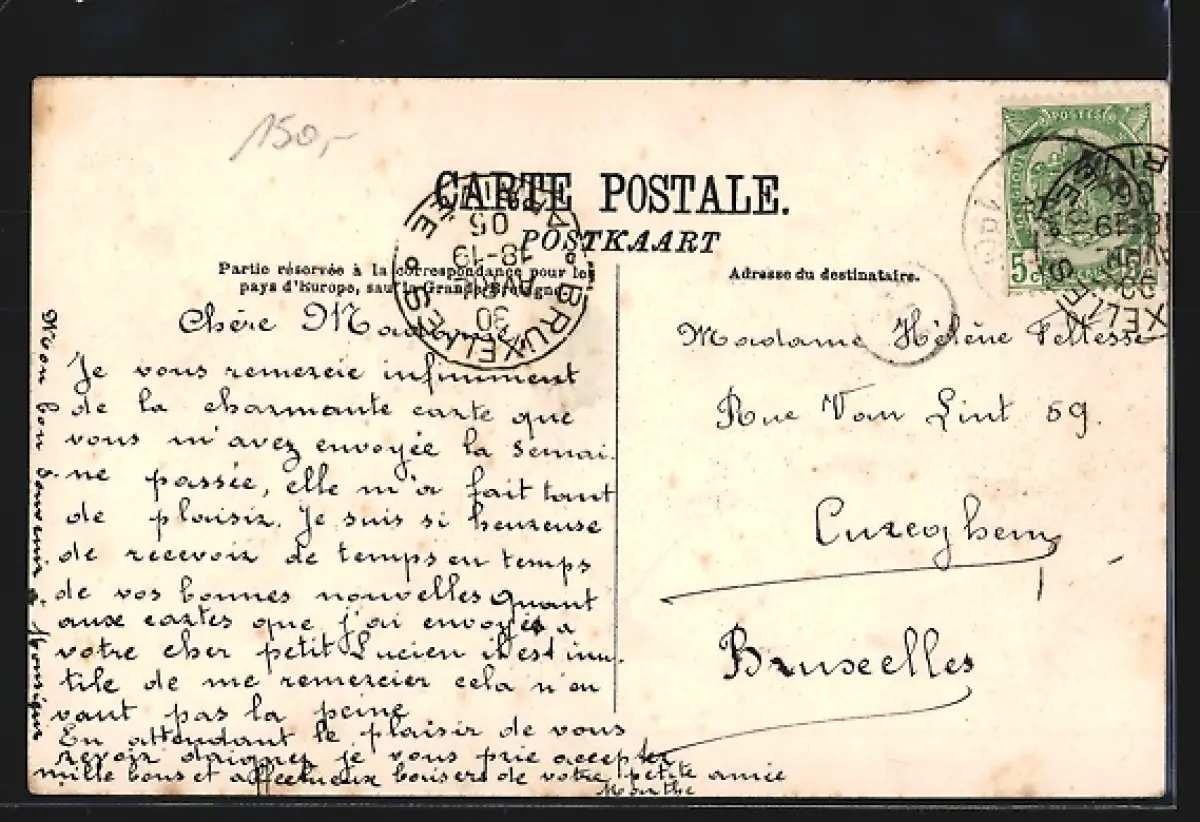 150,-
CARTE POSTALE.
POSTKAART
Partie réservée à la correspondance pour les
pays d'Europe, sauf la Grande-Bretagne.
Adresse du destinataire.
POSTES
5c
BRUXELLES
30
18-19
05
Chère Madame,
Je vous remercie infiniment
de la charmante carte que
vous m'avez envoyée la semai-
ne passée, elle m'a fait tant
de plaisir. Je suis si heureuse
de recevoir de temps en temps
de vos bonnes nouvelles Quant
aux cartes que j'ai envoyées a
votre cher petit Lucien il est inu-
tile de me remercier cela n'en
vaut pas la peine
En attendant le plaisir de vous
revoir daignez je vous prie accepter
mille bons et affectueux baisers de votre petite amie
Marthe
Mon bon souvenir à Monsieur
Madame Hélène Feltesse
Rue Van Lint 59.
Cureghem
Bruxelles